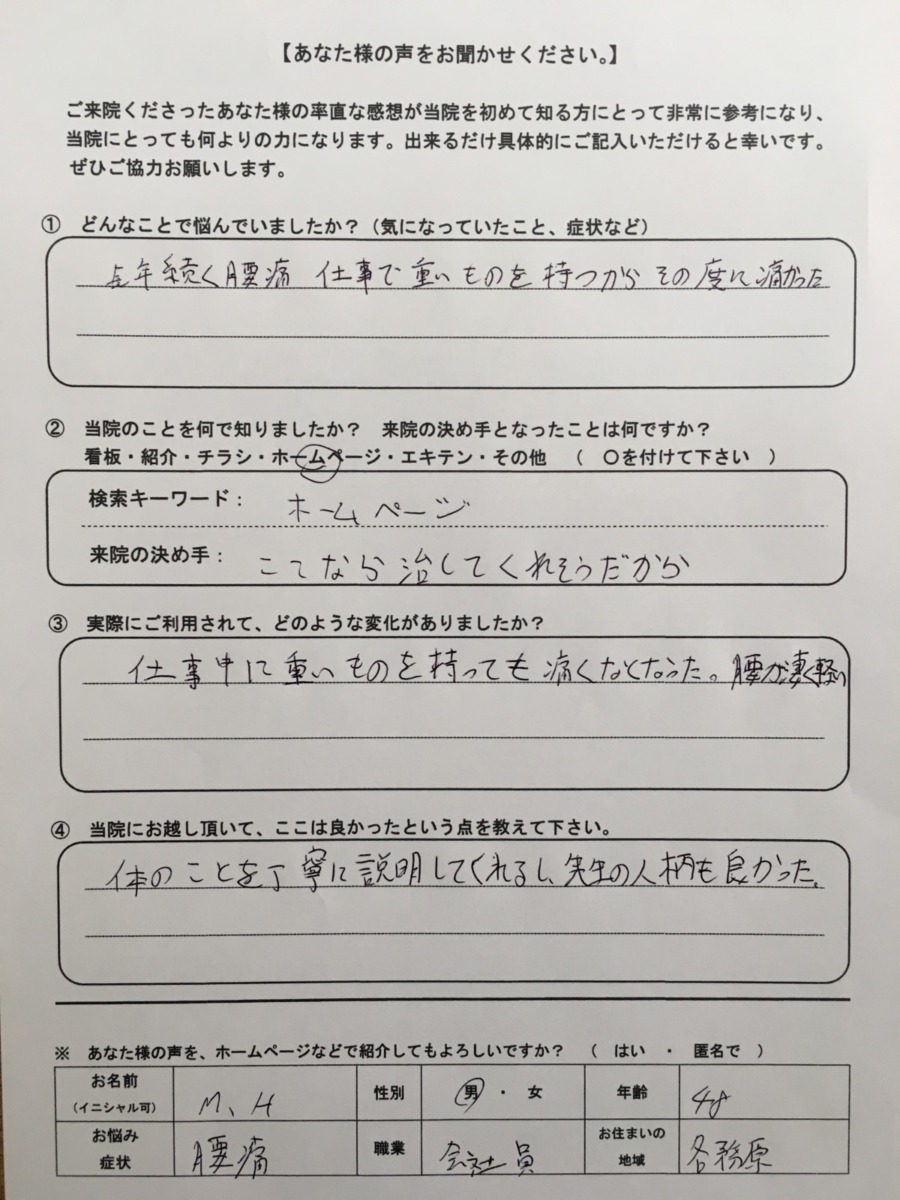 【あなた様の声をお聞かせください。】
ご来院くださったあなた様の率直な感想が当院を初めて知る方にとって非常に参考になり、
当院にとっても何よりの力になります。出来るだけ具体的にご記入いただけると幸いです。
ぜひご協力お願いします。
① どんなことで悩んでいましたか？（気になっていたこと、症状など）
長年続く腰痛 仕事で重いものを持つからその度に痛かった
② 当院のことを何で知りましたか？ 来院の決め手となったことは何ですか？
看板・紹介・チラシ・ホームページ・エキテン・その他 （ ○を付けて下さい ）
検索キーワード： ホームページ
来院の決め手： ここなら治してくれそうだから
③ 実際にご利用されて、どのような変化がありましたか？
仕事中に重いものを持っても痛くなくなった。腰が凄く軽い
④ 当院にお越し頂いて、ここは良かったという点を教えて下さい。
体のことを丁寧に説明してくれるし、先生の人柄も良かった。
※ あなた様の声を、ホームページなどで紹介してもよろしいですか？ （ はい ・ 匿名で ）
お名前 （イニシャル可） M、H 性別 男 ・ 女 年齢 48
お悩み 症状 腰痛 職業 会社員 お住まいの 地域 各務原